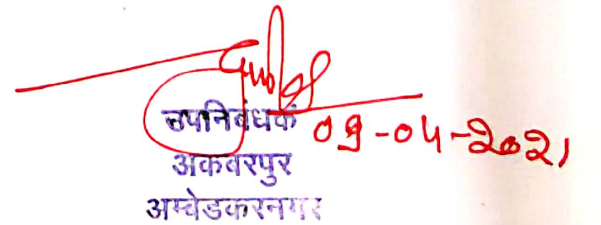 उपनिबंधक 09-04-2021
अकबरपुर
अम्बेडकरनगर